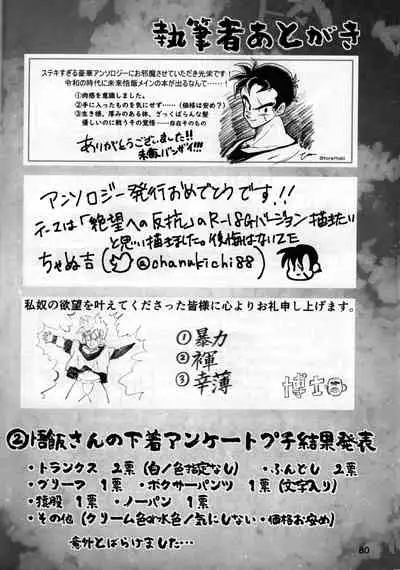 執筆者あとがき
ステキすぎる豪華アンソロジーにお邪魔させていただき光栄です！
令和の時代に未来悟飯メインの本が出るなんて……！
①肉感を意識しました。
②手に入ったものを気にせず……（価格は安め？）
③生き様、厚みのある体、ざっくばらんな髪
優しいのに戦うその覚悟……存在そのもの
ありがとうございました!!
未飯バンザイ!!!
アンソロジー発行おめでとうです!!
テーマは「絶望への反抗」のR-18Gバージョン描きたい
と思い描きました。後悔はないです
ちゃぬ吉
@chanukichi88
私奴の欲望を叶えてくださった皆様に心よりお礼申し上げます。
①暴力
②褌
③幸薄
博士
②悟飯さんの下着アンケートプチ結果発表
・トランクス 2票（白/色指定なし）・ふんどし 2票
・ブリーフ 1票 ・ボクサーパンツ 1票（文字入り）
・猿股 1票 ・ノーパン 1票
・その他（クリーム色か水色/気にしない・価格お安め）
意外とばらけました…
80